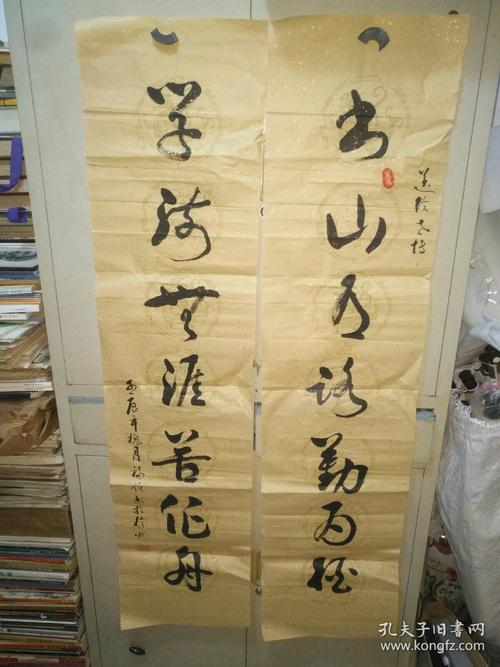 送给
书山有路勤为径
学海無涯苦作舟
辰年桃月
孔夫子旧书网
www.kongfz.com